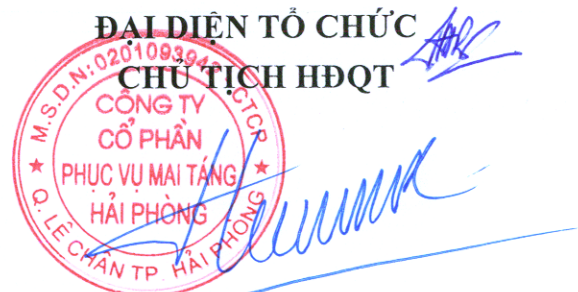 ĐẠI DIỆN TỔ CHỨC
CHỦ TỊCH HĐQT
M.S.D.N: CTCP
CÔNG TY
CỔ PHẦN
PHỤC VỤ MAI TÁNG
HẢI PHÒNG
Q. LÊ CHÂN TP. HẢI PHÒNG